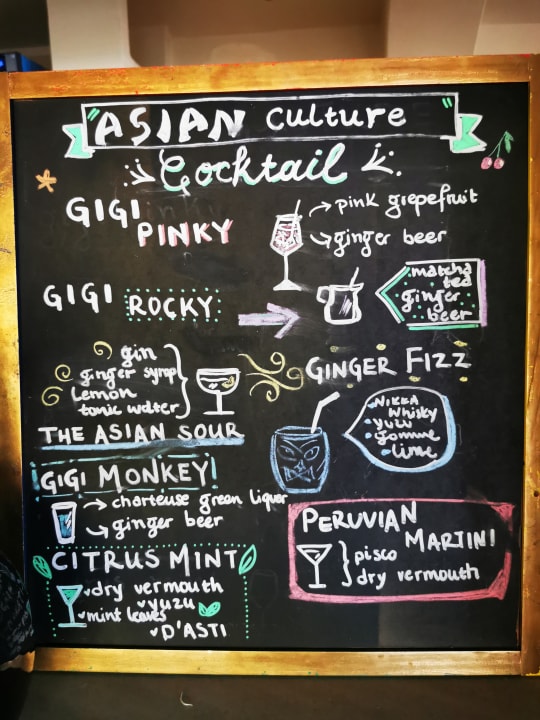 "ASIAN Culture"
Cocktail
GIGI
PINKY
pink grepefruit
ginger beer
GIGI ROCKY
matcha
tea
ginger
beer
gin
ginger syrup
Lemon
tonic walter
THE ASIAN SOUR
GINGER FIZZ
NIKKA
Whisky
yuzu
gomme
lime
GIGI MONKEY
charteuse green liquer
ginger beer
PERUVIAN
MARTINI
pisco
dry vermouth
CITRUS MINT
dry vermouth
yuzu
mint leaves
D'ASTI